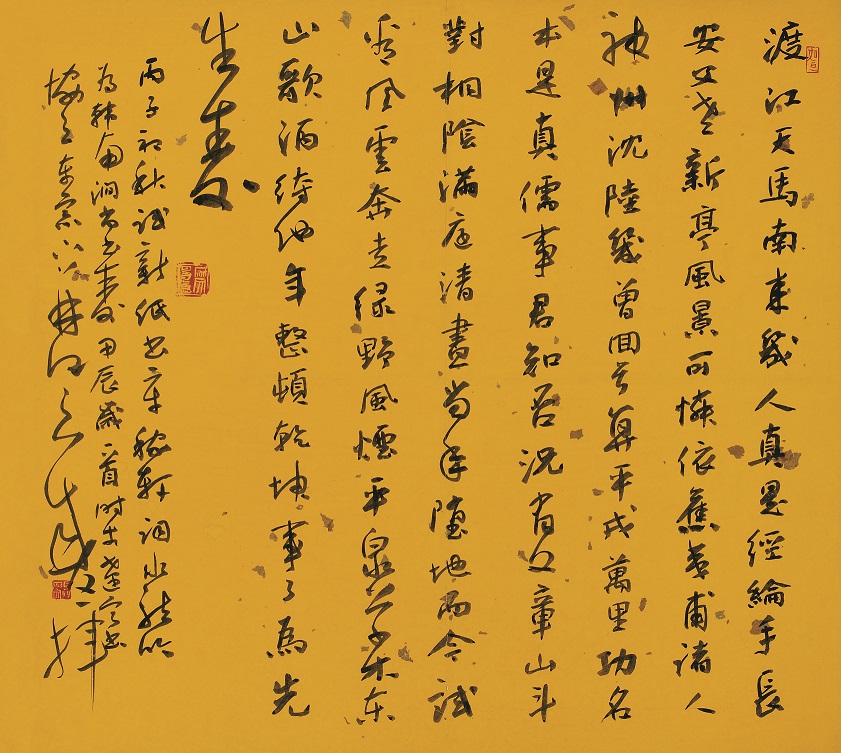 渡江天馬南來幾人真是經綸手長
安父老新亭風景可憐依舊夷甫諸人
神州沈陸幾曾回首算平戎萬里功名
本是真儒事君知否況有文章山斗
對桐陰滿庭清晝當年墮地而今試
看風雲奔走綠野風煙平泉草木東
山歌酒待他年整頓乾坤事了為先
生壽
丙子初秋試新紙書辛稼軒詞水龍吟
為韓南澗尚書壽甲辰歲一首時